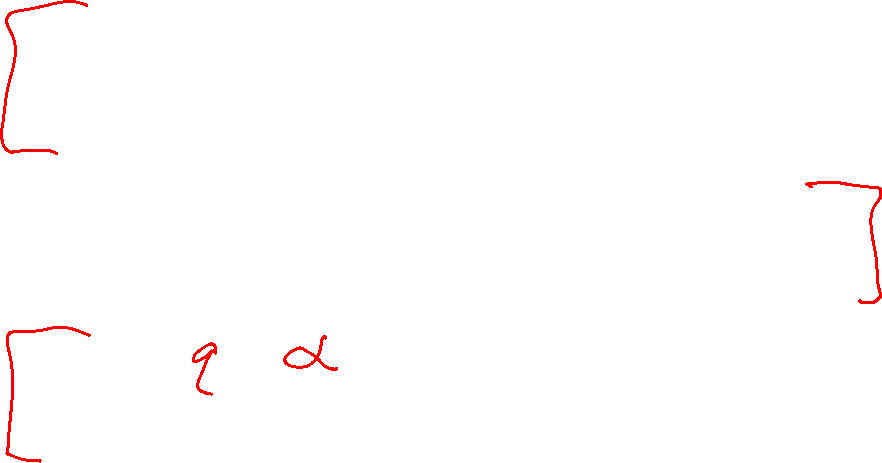 [
]
[ q α